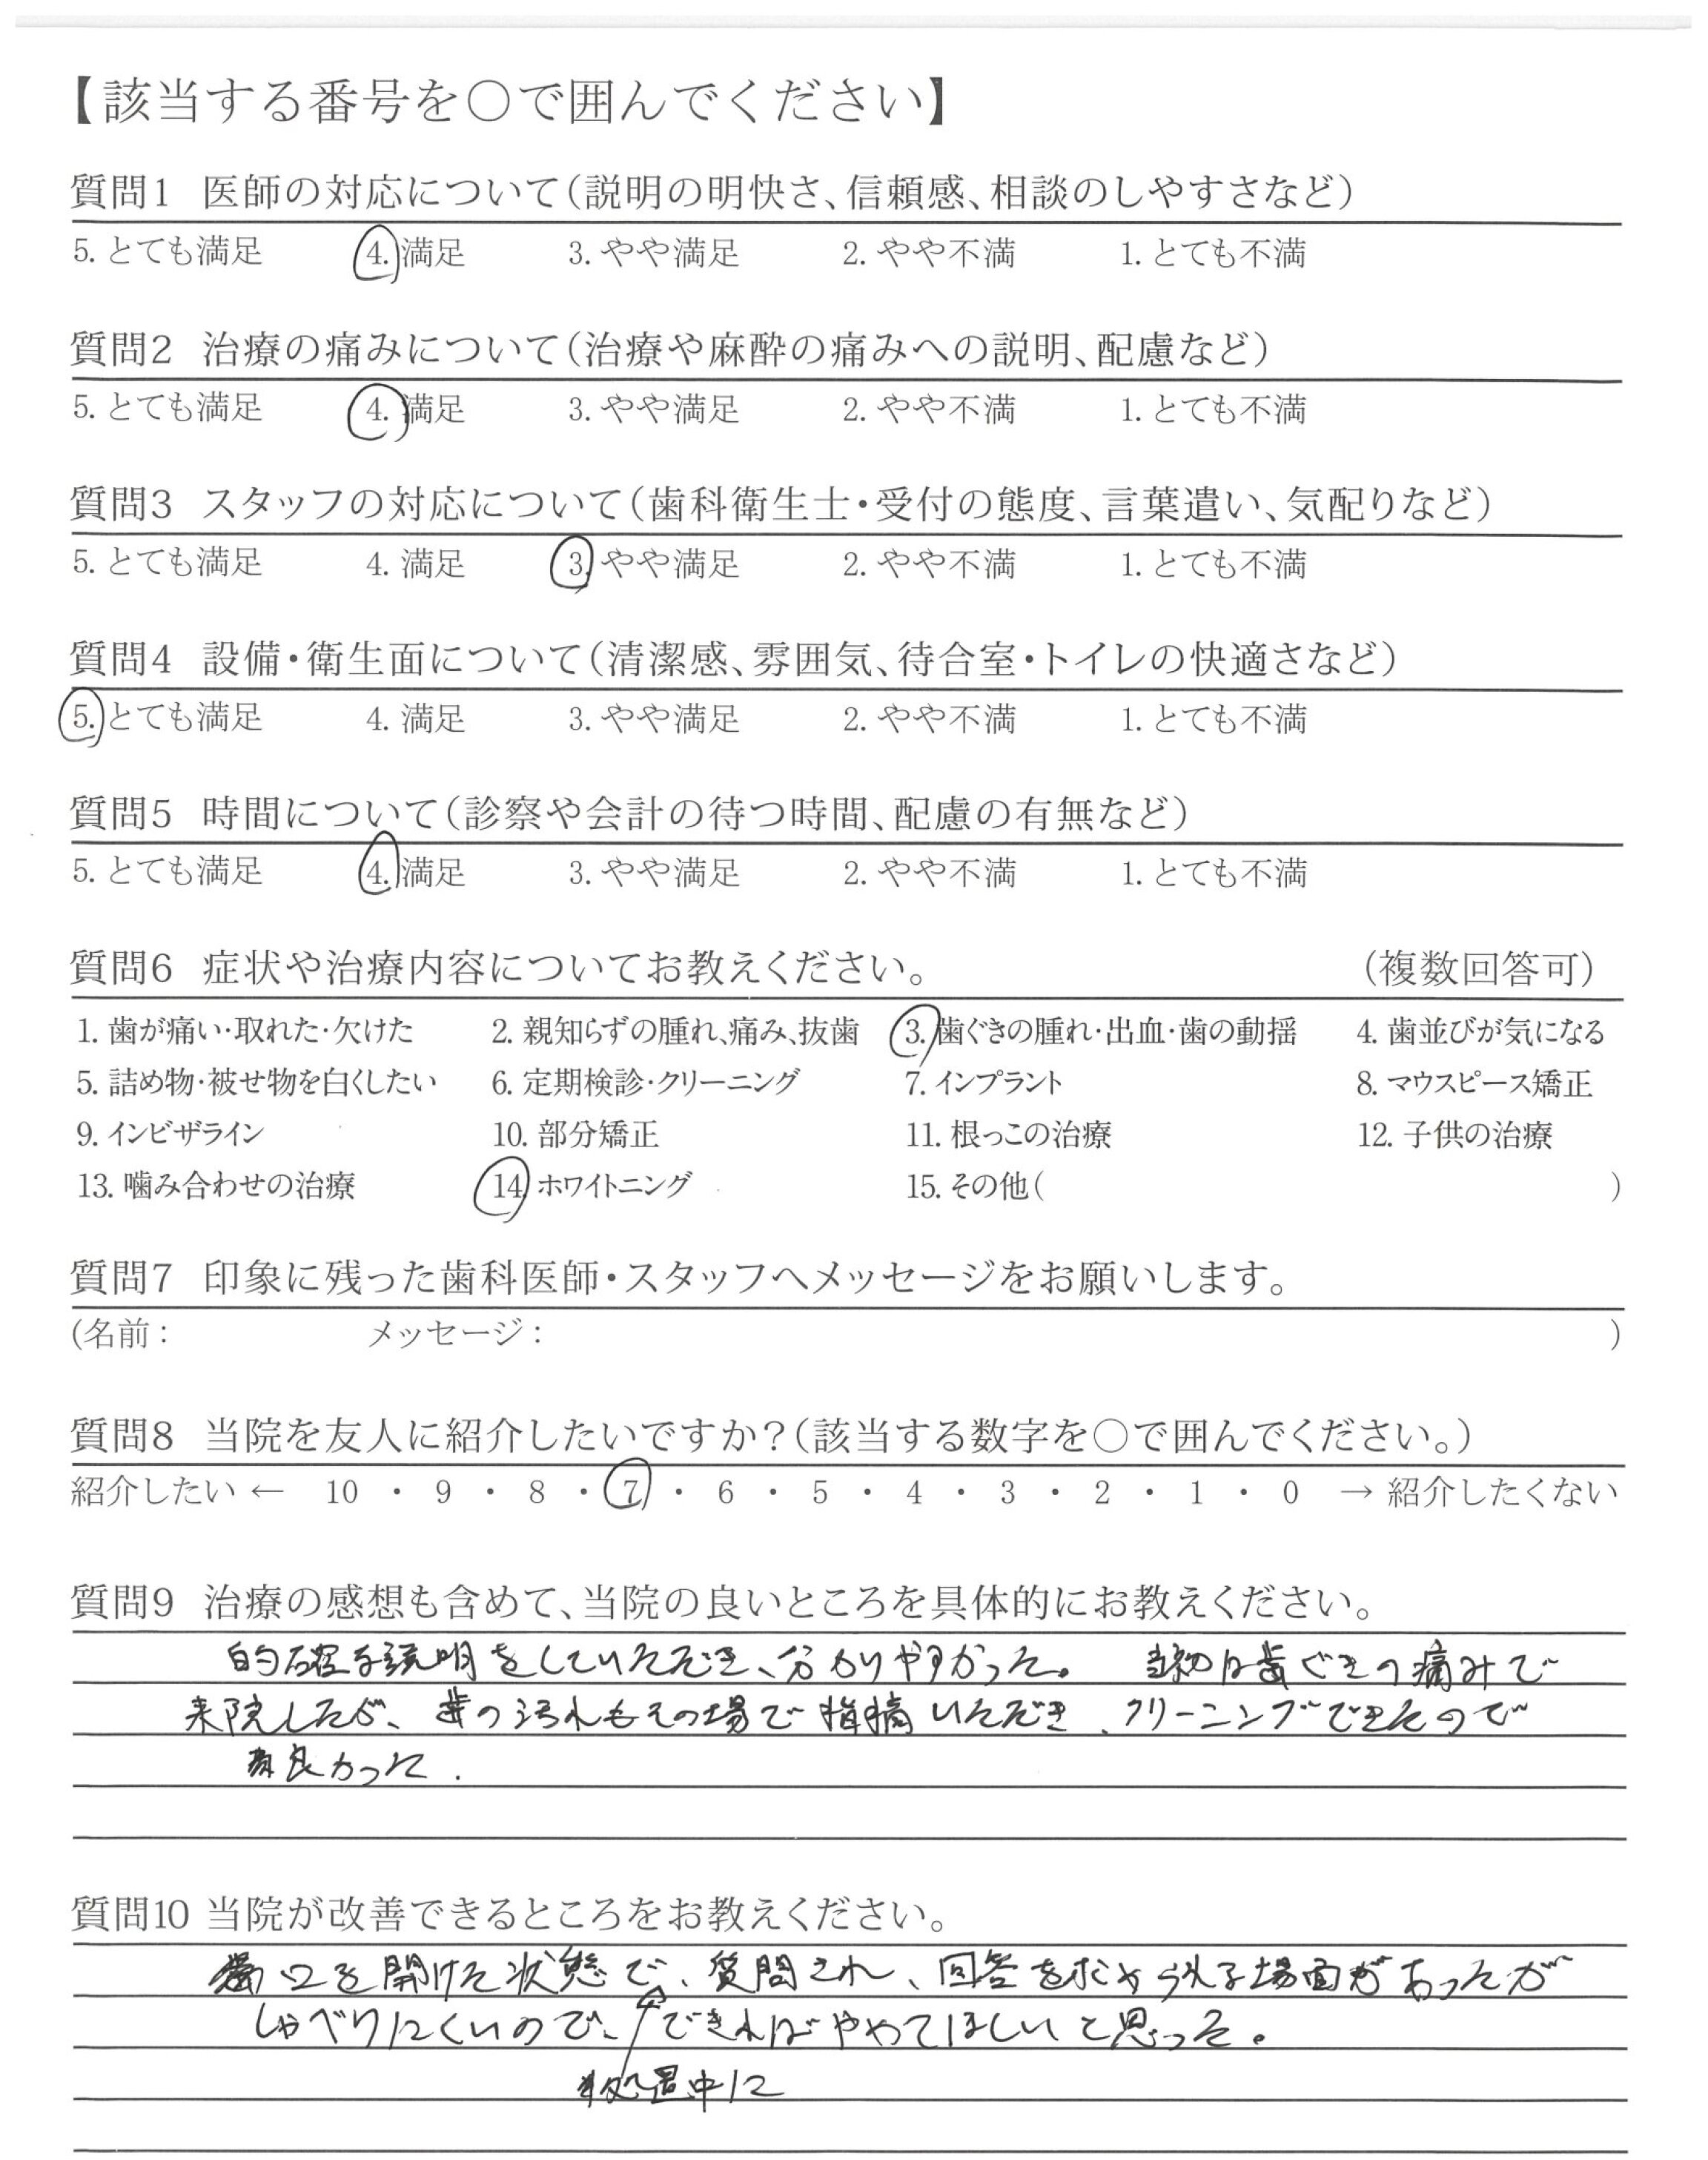 【該当する番号を○で囲んでください】
質問1 医師の対応について(説明の明快さ、信頼感、相談のしやすさなど)
5. とても満足 4. 満足 3. やや満足 2. やや不満 1. とても不満
質問2 治療の痛みについて(治療や麻酔の痛みへの説明、配慮など)
5. とても満足 4. 満足 3. やや満足 2. やや不満 1. とても不満
質問3 スタッフの対応について(歯科衛生士・受付の態度、言葉遣い、気配りなど)
5. とても満足 4. 満足 3. やや満足 2. やや不満 1. とても不満
質問4 設備・衛生面について(清潔感、雰囲気、待合室・トイレの快適さなど)
5. とても満足 4. 満足 3. やや満足 2. やや不満 1. とても不満
質問5 時間について(診察や会計の待つ時間、配慮の有無など)
5. とても満足 4. 満足 3. やや満足 2. やや不満 1. とても不満
質問6 症状や治療内容についてお教えください。 (複数回答可)
1. 歯が痛い・取れた・欠けた 2. 親知らずの腫れ、痛み、抜歯 3. 歯ぐきの腫れ・出血・歯の動揺 4. 歯並びが気になる
5. 詰め物・被せ物を白くしたい 6. 定期検診・クリーニング 7. インプラント 8. マウスピース矯正
9. インビザライン 10. 部分矯正 11. 根っこの治療 12. 子供の治療
13. 噛み合わせの治療 14. ホワイトニング 15. その他( )
質問7 印象に残った歯科医師・スタッフへメッセージをお願いします。
(名前: メッセージ: )
質問8 当院を友人に紹介したいですか?(該当する数字を○で囲んでください。)
紹介したい ← 10 ・ 9 ・ 8 ・ 7 ・ 6 ・ 5 ・ 4 ・ 3 ・ 2 ・ 1 ・ 0 → 紹介したくない
質問9 治療の感想も含めて、当院の良いところを具体的にお教えください。
的確な説明をしていただき、分かりやすかった。 当初は歯ぐきの痛みで
来院したが、歯の汚れもその場で指摘いただき、クリーニングできたので
良かった.
質問10 当院が改善できるところをお教えください。
口を開けた状態で、質問され、回答を求められる場面があったが
しゃべりにくいので、できればやめてほしいと思った。
処置中に